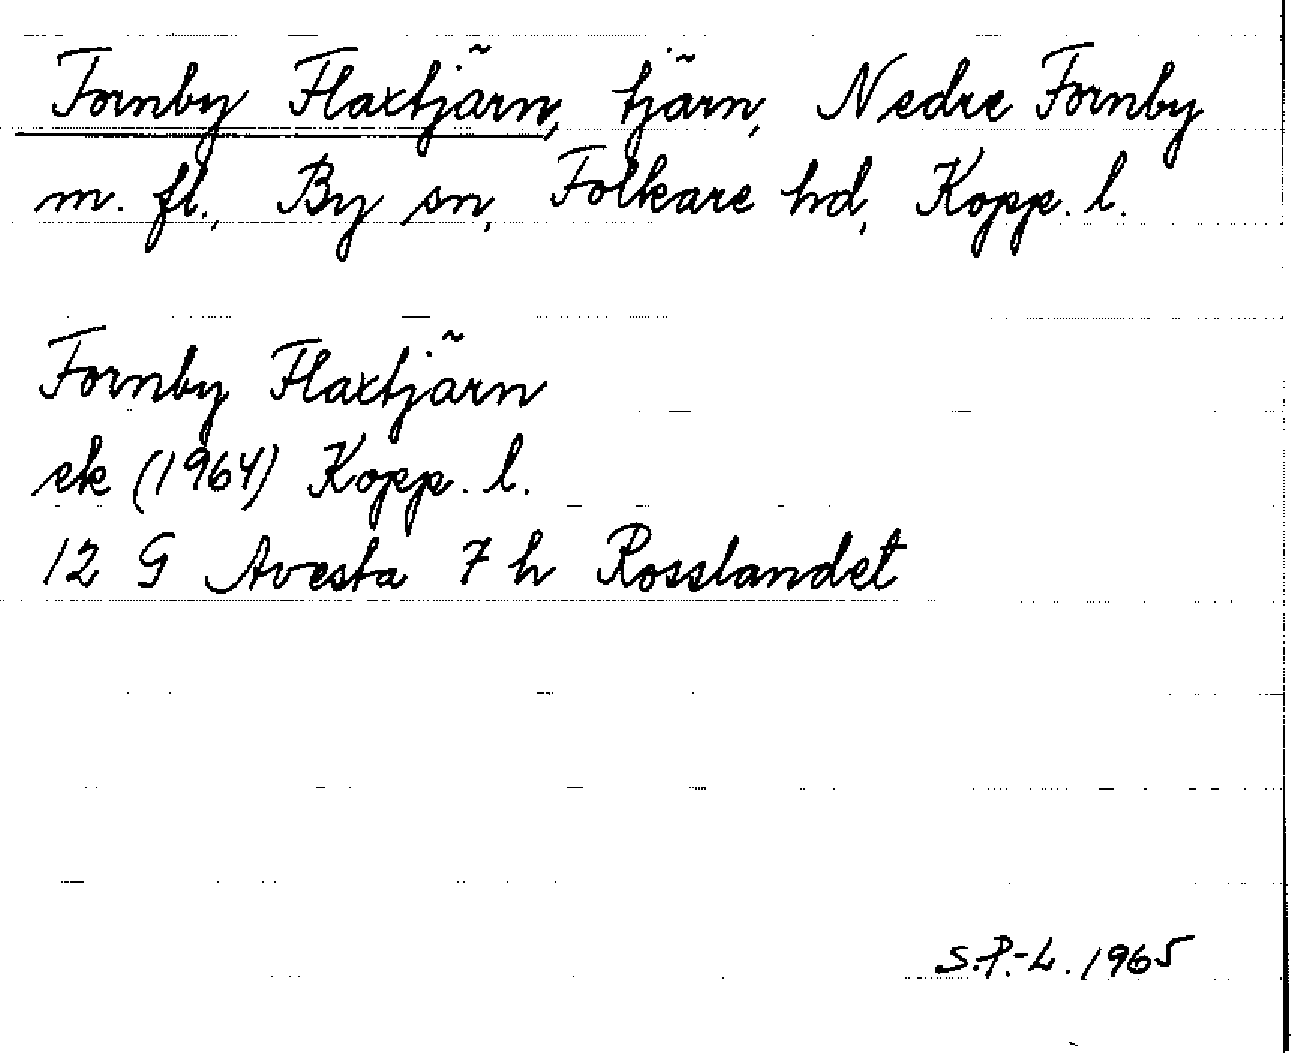 Fornby Flaxtjärn, tjärn, Nedre Fornby
m. fl., By sn, Folkare hd, Kopp. l.
Fornby Flaxtjärn
ek (1964) Kopp. l.
12 G Avesta 7 h Rosslandet
S.P.-L. 1965